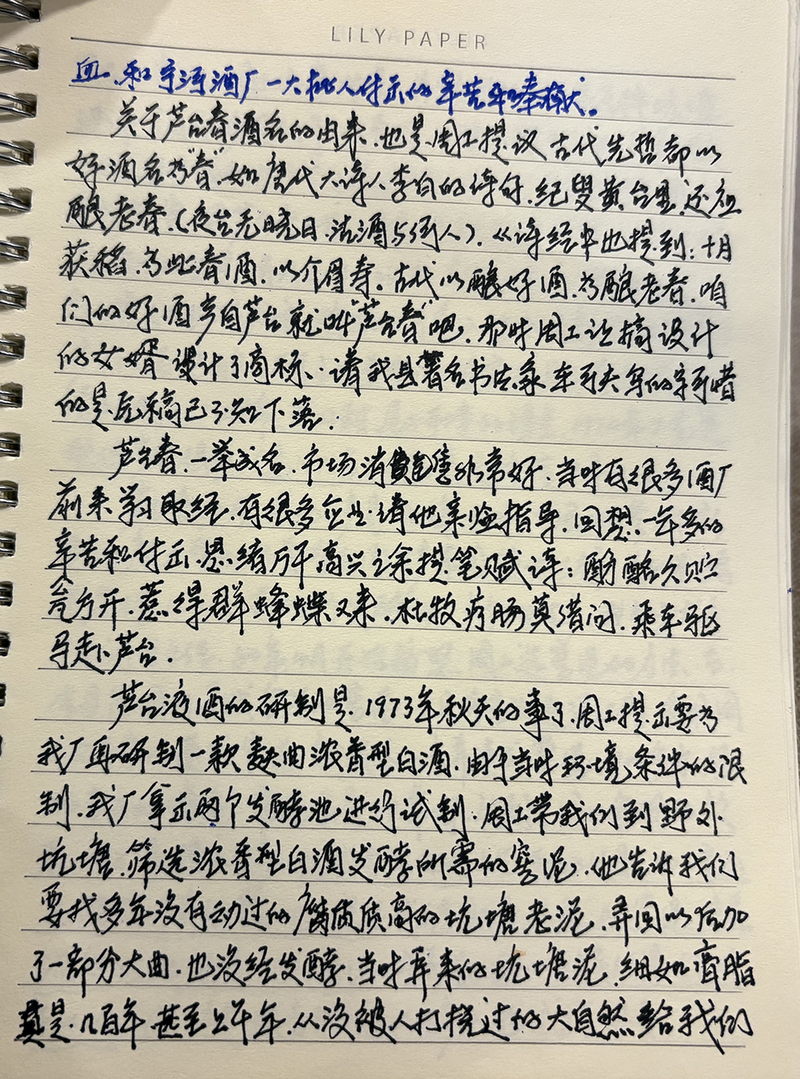 LILY PAPER
血。和宁河酒厂一大批人付出的辛苦和奉献。
关于芦台春酒名的由来,也是周工提议古代先哲都以
好酒名为"春",如唐代大诗人李白的诗句,纪叟黄台里,还应
酿老春。(夜台无晓日,沽酒与何人)。从诗经中也提到:十月
获稻,为此春酒,以介眉寿。古代以酿好酒,为酿老春,咱
们的好酒产自芦台就叫"芦台春"吧,那时周工让搞设计
的女婿设计了商标,请我县著名书法家 写的字可惜
的是原稿已不知下落。
芦台春,一举成名,市场消费 非常好,当时有很多酒厂
前来学习取经,有很多企业请他亲临指导,回想一年多的
辛苦和付出,思绪万千高兴之余提笔赋诗:酶醅久贮
瓮方开,惹得群蜂蝶又来,杜牧 肠莫借问,乘车驱
马赴芦台。
芦台液酒的研制是,1973年秋天的事了,周工提出要为
我厂再研制一款麸曲浓香型白酒,由于当时环境条件的限
制,我厂拿出两个发酵池进行试制,周工带我们到野外
坑塘,筛选浓香型白酒发酵所需的窖泥,他告诉我们
要找多年没有动过的腐质质高的坑塘老泥,弄回以后加
了一部分大曲,也没经发酵,当时弄来的坑塘泥,细如膏脂
真是,几百年甚至上千年,从没被人打扰过的大自然给我们